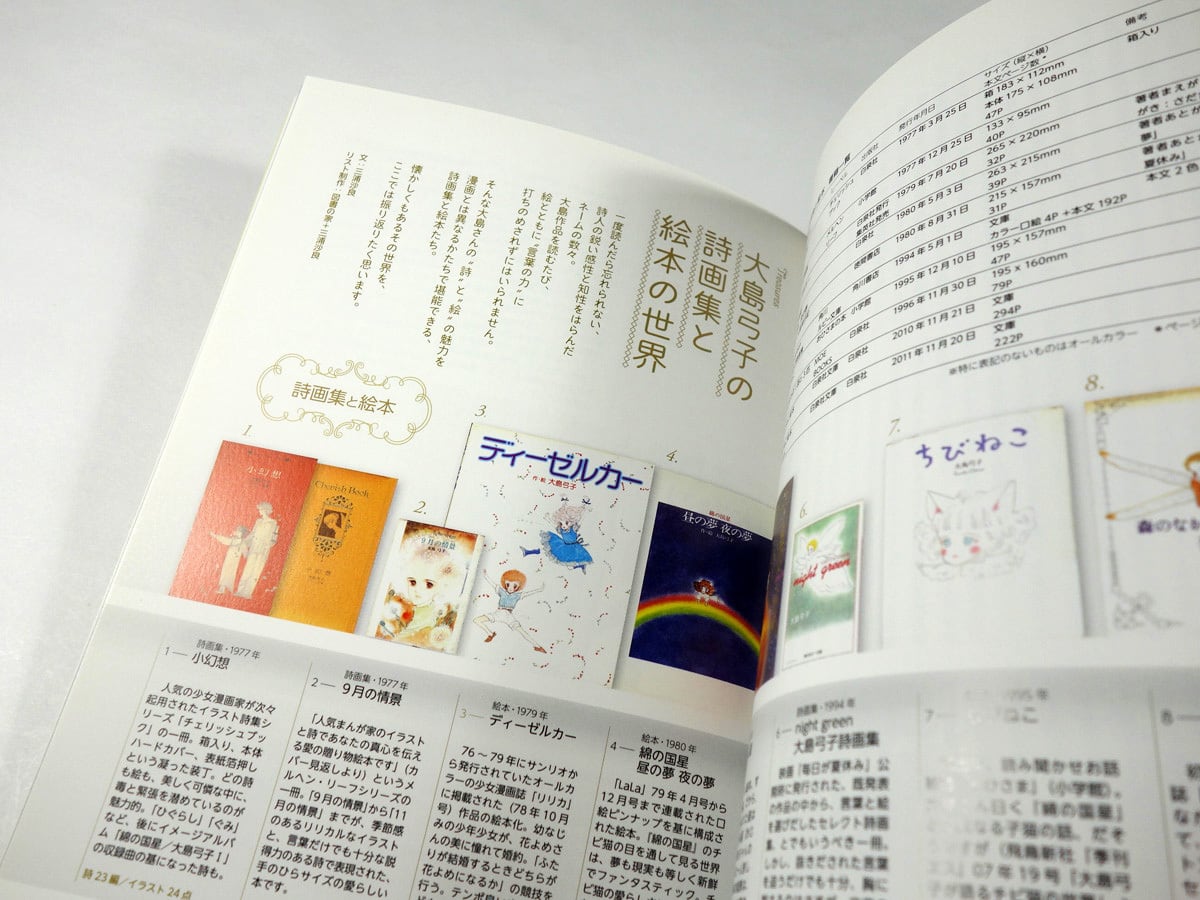 Treasures!
大島弓子の
詩画集と
絵本の世界
一度読んだら忘れられない、
詩人の鋭い感性と知性をはらんだ
ネームの数々。
大島作品を読むたび、
絵とともに“言葉の力”に
打ちのめされずにはいられません。
そんな大島さんの“詩”と“絵”の魅力を
漫画とは異なるかたちで堪能できる、
詩画集と絵本たち。
懐かしくもあるその世界を、
ここでは振り返りたく思います。
文・三浦沙良
リスト制作・図書の家+三浦沙良
詩画集と絵本
1.
小幻想
Cherish Book
小幻想
2.
9月の情景
3.
ディーゼルカー
作・絵 大島弓子
4.
綿の国星
昼の夢 夜の夢
1― 詩画集・1977年
小幻想
人気の少女漫画家が次々
起用されたイラスト詩集シ
リーズ「チェリッシュブッ
ク」の一冊。箱入り、本体
ハードカバー、表紙箔押し
という凝った装丁。どの詩
も絵も、美しく可憐な中に、
毒と緊張を潜めているのが
魅力的。「ひぐらし」「ぐみ」
など、後にイメージアルバ
ム「綿の国星/大島弓子Ⅰ」
の収録曲の基になった詩も。
詩23編/イラスト24点
2― 詩画集・1977年
9月の情景
「人気まんが家のイラスト
と詩であなたの真心を伝え
る愛の贈り物絵本です」(カ
バー見返しより)というメ
ルヘン・リーフシリーズの
一冊。「9月の情景」から「11
月の情景」までが、季節感
のあるリリカルなイラスト
と、言葉だけでも十分な説
得力のある詩で表現された、
手のひらサイズの愛らしい
本です。
3― 絵本・1979年
ディーゼルカー
76～79年にサンリオか
ら発行されていたオールカ
ラーの少女漫画誌「リリカ」
に掲載された(78年10月
号)作品の絵本化。幼なじ
みの少年少女が、花よめさ
んの美に憧れて婚約。「ふた
りが結婚するときどちらが
花よめになるか」の競技を
行う。テンポ良い
4― 絵本・1980年
綿の国星
昼の夢 夜の夢
「LaLa」79年4月号から
12月号まで連載された口
絵ピンナップを基に構成さ
れた絵本。「綿の国星」のチ
ビ猫の目を通して見る世界
は、夢も現実も等しく新鮮
でファンタスティック。チ
ビ猫の愛らし
備考
サイズ(縦×横)
本文ページ数*
発行年月日
出版社
箱入り
1977年3月25日
箱183×112mm
本体175×108mm
47P
1977年12月25日
133×95mm
40P
1979年7月20日
265×220mm
32P
1980年5月3日
263×215mm
39P
1980年8月31日
215×157mm
31P
1994年5月1日
文庫
カラー口絵4P+本文192P
1995年12月10日
195×157mm
47P
1996年11月30日
195×160mm
79P
2010年11月21日
文庫
294P
2011年11月20日
文庫
222P
著者まえが
がき:さだ
著者あとが
夢」
著者あと
夏休み」
本文2色
白泉社
小学館
白泉社発行
集英社発売
白泉社
徳間書店
角川書店
小学館
MOE
BOOKS
白泉社
白泉社文庫 白泉社
白泉社文庫 白泉社
※特に表記のないものはオールカラー *ページ
6.
night green
7.
ちびねこ
大島弓子
8.
森のなか
6― 詩画集・1994年
night green
大島弓子詩画集
映画「毎日が夏休み」公
開時に発行された、既発表
の作品の中から、言葉と絵
を選びだしたセレクト詩画
集、とでもいうべき一冊。
しかし、抜きだされた言葉
を追うだけでも十分、胸に
7―
1995年
ねこ
読み聞かせお話
(小学館)。
曰く「綿の国星」
になる子猫の話、だそ
(飛鳥新社「季刊
07年19号「大島弓
8―